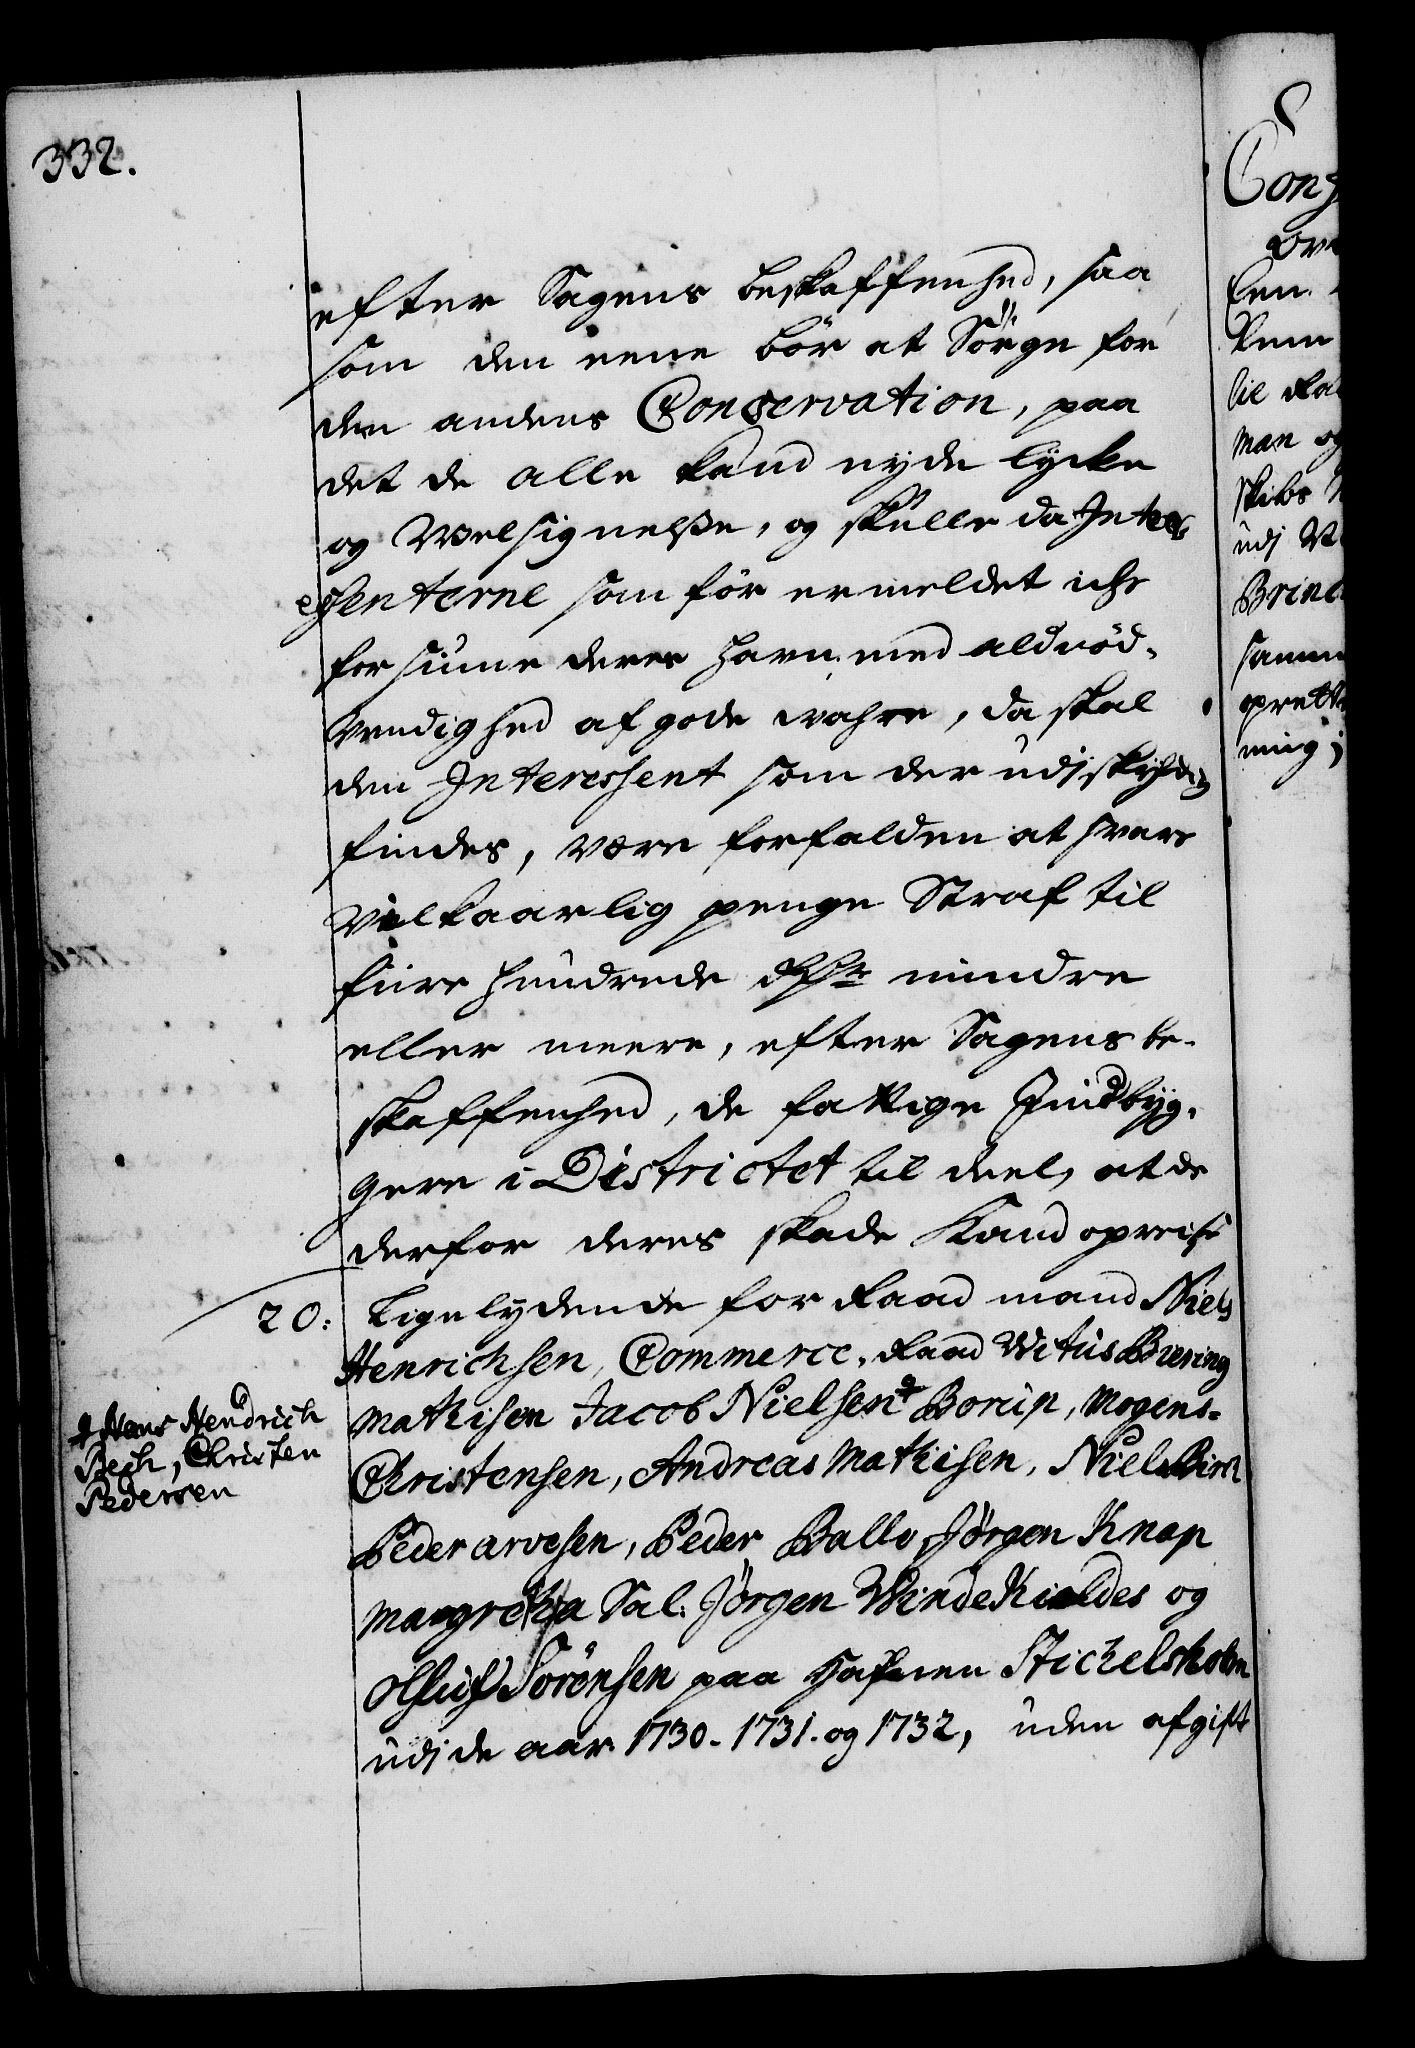 332.
efter Sagens beskaffenhed, saa
som den eene bör at Sörge for
den andens Conservation, paa
det de alle kand nyde lycke
og Welsignelsse, og skulle da Inter
essenterne som för ermeldet icke
forsüme deres Hafn med ald nöd-
vendighed af gode wahre, da skal
den Interessent som der udi skyldig
findes, være forfalden at svare
Vilkaarlig penge Straf til
fiire Hundrede Rdr mindre
eller meere, efter Sagens be-
skaffenhed, de fattige Indbyg-
gere i Districtet til deel, at de
derfor deres skade Kand opreise
20: Ligelydende for Raad mand Niels
Henrichsen, Commerce-Raad Witus Buering
Mathisen Jacob Nielsen ‡ Borup, Mogens
‡ Hans Hendrich
Bech, Christen
Pedersen
Christensen, Andreas Mathisen, Niels Birch
Peder Arvesen, Peder Ballo, Jörgen Knap
Margretha Sal. Jörgen Winde Kieldes og
Olluf Sörensen paa Hafnen Stichelsholm
udi de aar 1730-1731. og 1732, uden afgift
Cons
Een
til Raa
man og
skibs
udi
Brinc
samm
oprett
ning;